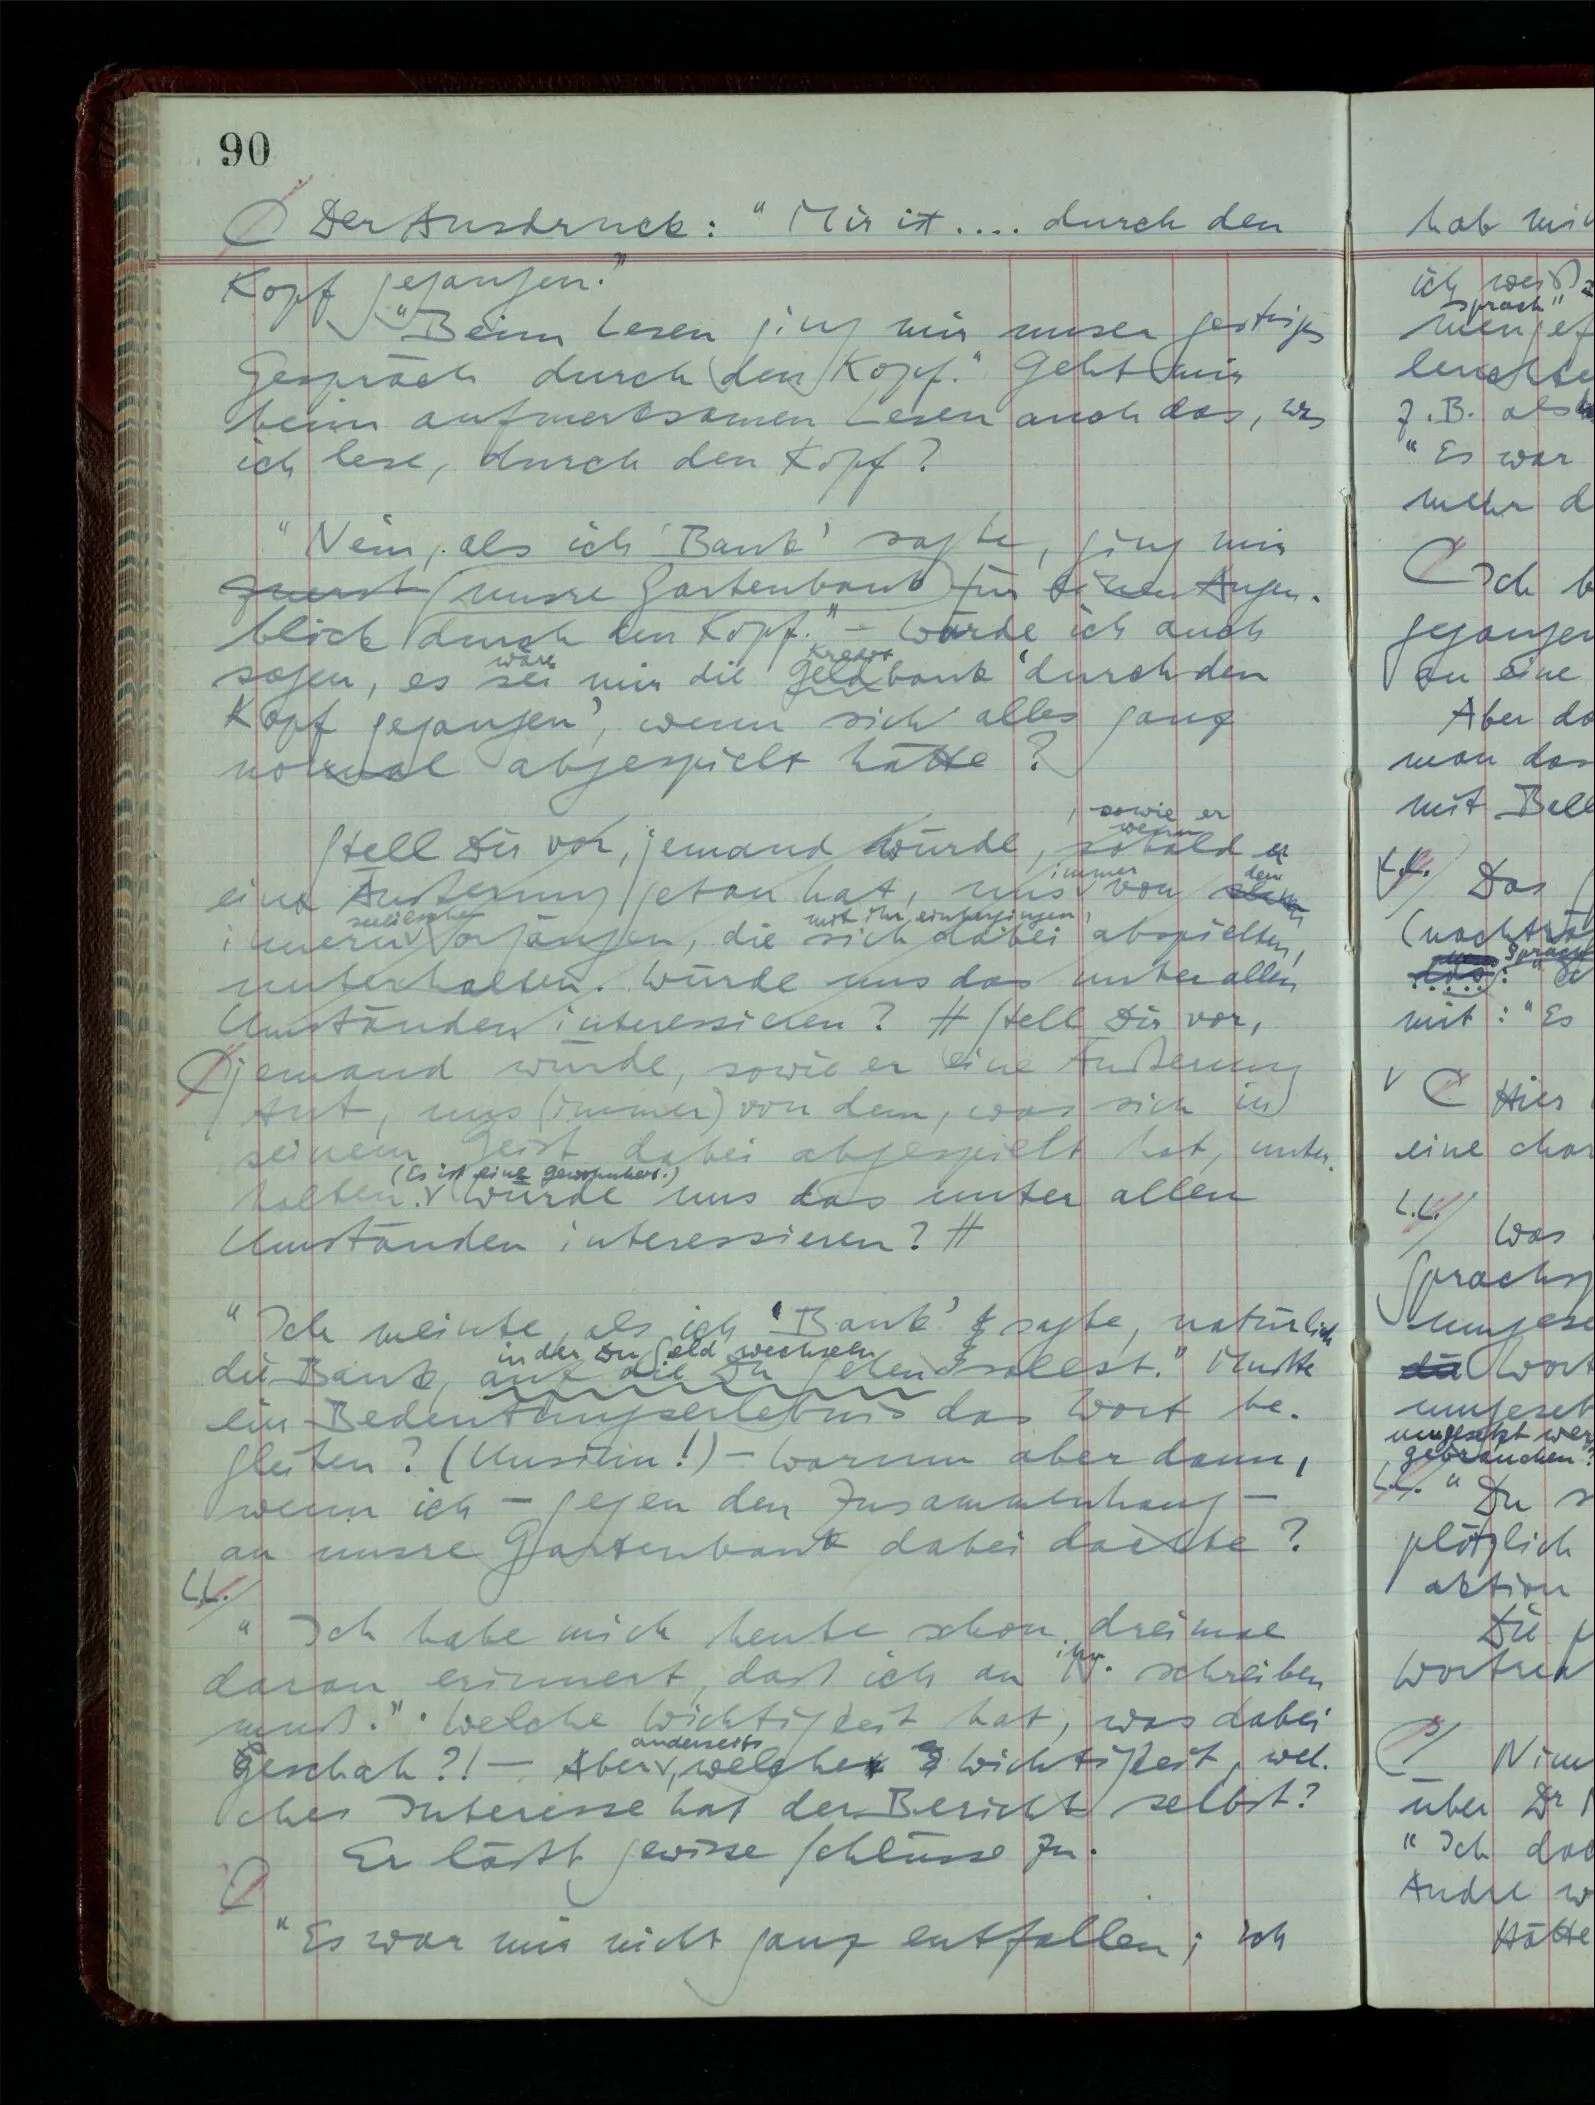 90
Der Ausdruck: "Mir ist .... durch den
Kopf gegangen."
"Beim Lesen ging mir unser gestriges
Gespräch durch den Kopf." Geht mir
beim aufmerksamen Lesen auch das, was
ich lese, durch den Kopf?
"Nein, als ich 'Bank' sagte, ging mir
zuerst unsre Gartenbank für einen Augen-
blick durch den Kopf." – Würde ich auch
wäre Kredit
sagen, es sei mir die Geldbank 'durch den
Kopf gegangen', wenn sich alles ganz
normal abgespielt hätte?
, sowie er
wenn
Stell Dir vor, jemand würde, sobald er
immer den
eine Äußerung getan hat, uns von
seelischen mit ihr einhergingen,
innern Vorgängen, die sich dabei abspielten,
unterhalten. Würde uns das unter allen
Umständen interessieren? // Stell Dir vor,
jemand würde, sowie er eine Äußerung
tut, uns (immer) von dem, was sich in
seinem Geist dabei abgespielt hat, unter-
(Es ist eine Gewohnheit.)
halten. Würde uns das unter allen
Umständen interessieren? //
"Ich meinte, als ich 'Bank' sagte, natürlich
in der Du Geld wechseln
die Bank, auf die Du gehen sollst." Mußte
ein Bedeutungserlebnis das Wort be-
gleiten? (Unsinn!) – Warum aber dann,
wenn ich – gegen den Zusammenhang –
an unsre Gartenbank dabei dachte?
"Ich habe mich heute schon dreimal
ihn
daran erinnert, daß ich an N. schreiben
muß." Welche Wichtigkeit hat, was dabei
anderseits
geschah?! – Aber, welche Wichtigkeit, wel-
ches Interesse hat der Bericht selbst?
Er läßt gewisse Schlüsse zu.
"Es war mir nicht ganz entfallen; ich
hab mich
ich weiß
sprach"
leuchte
z.B. als
"Es war
mehr d
Ich b
gegangen
an eine
Aber da
man das
mit Bell
Das
mit: "Es
Hier
eine char
Was
Sprachsp
umgese
die Wort
umgeset
umgesetzt wer
gebrauchen?
"Du s
plötzlich
aktion
Die
Wortrea
Nim
über Dr N
"Ich dac
Andre w
Hätte